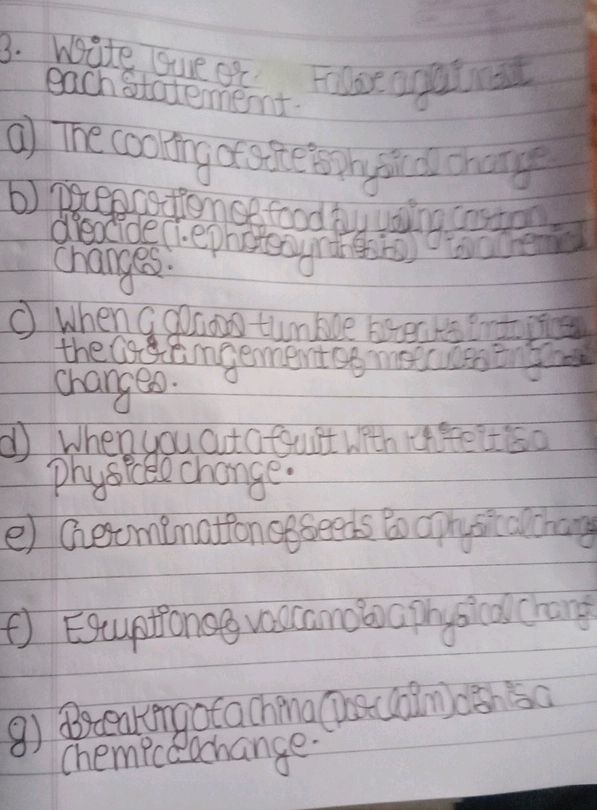 3. Write True or False against
each statement.
a) The cooking of rice is physical change
b) preparation of food by using carbon
dioxide (i.e photosynthesis) is a chemical
changes.
c) When a glass tumble breaks into pieces
the arrangement of molecules in glass
changes.
d) When you cut a fruit with knife it is a
physical change.
e) Germination of seeds is a physical change
f) Eruption of volcano is a physical change
g) Breaking of a china (porclaim) dish is a
chemical change.